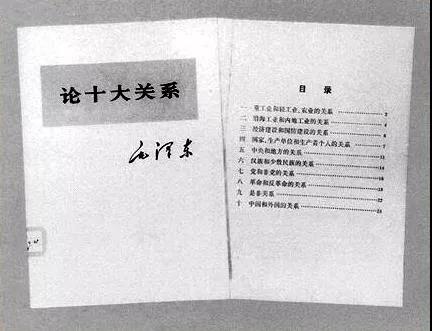 论十大关系
毛泽东
目录
一 重工业和轻工业、农业的关系
二 沿海工业和内地工业的关系
三 经济建设和国防建设的关系
四 国家、生产单位和生产者个人的关系
五 中央和地方的关系
六 汉族和少数民族的关系
七 党和非党的关系
八 革命和反革命的关系
九 是非关系
十 中国和外国的关系